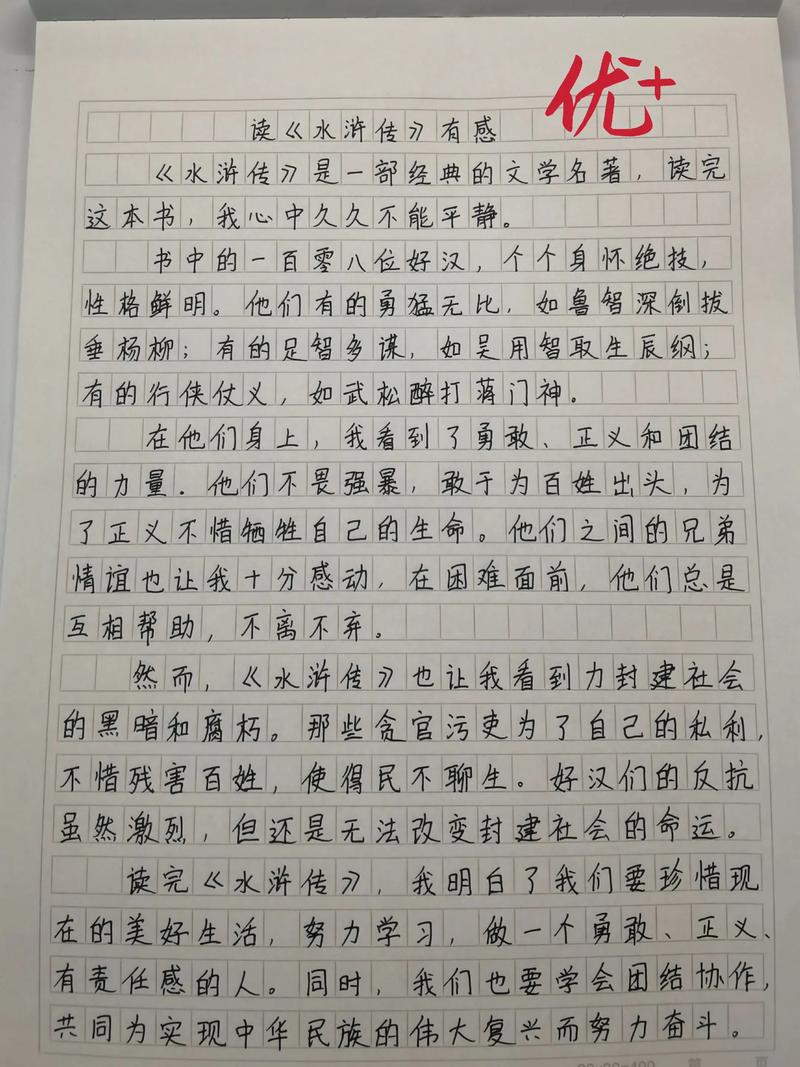 优+
读《水浒传》有感
《水浒传》是一部经典的文学名著，读完
这本书，我心中久久不能平静。
书中的一百零八位好汉，个个身怀绝技，
性格鲜明。他们有的勇猛无比，如鲁智深倒拔
垂杨柳；有的足智多谋，如吴用智取生辰纲；
有的行侠仗义，如武松醉打蒋门神。
在他们身上，我看到了勇敢、正义和团结
的力量．他们不畏强暴，敢于为百姓出头，为
了正义不惜牺牲自己的生命。他们之间的兄弟
情谊也让我十分感动，在困难面前，他们总是
互相帮助，不离不弃。
然而，《水浒传》也让我看到力封建社会
的黑暗和腐朽。那些贪官污吏为了自己的私利，
不惜残害百姓，使得民不聊生。好汉们的反抗
虽然激烈，但还是无法改变封建社会的命运。
读完《水浒传》，我明白了我们要珍惜现
在的美好生活，努力学习，做一个勇敢、正义、
有责任感的人。同时，我们也要学会团结协作，
共同为实现中华民族的伟大复兴而努力奋斗。